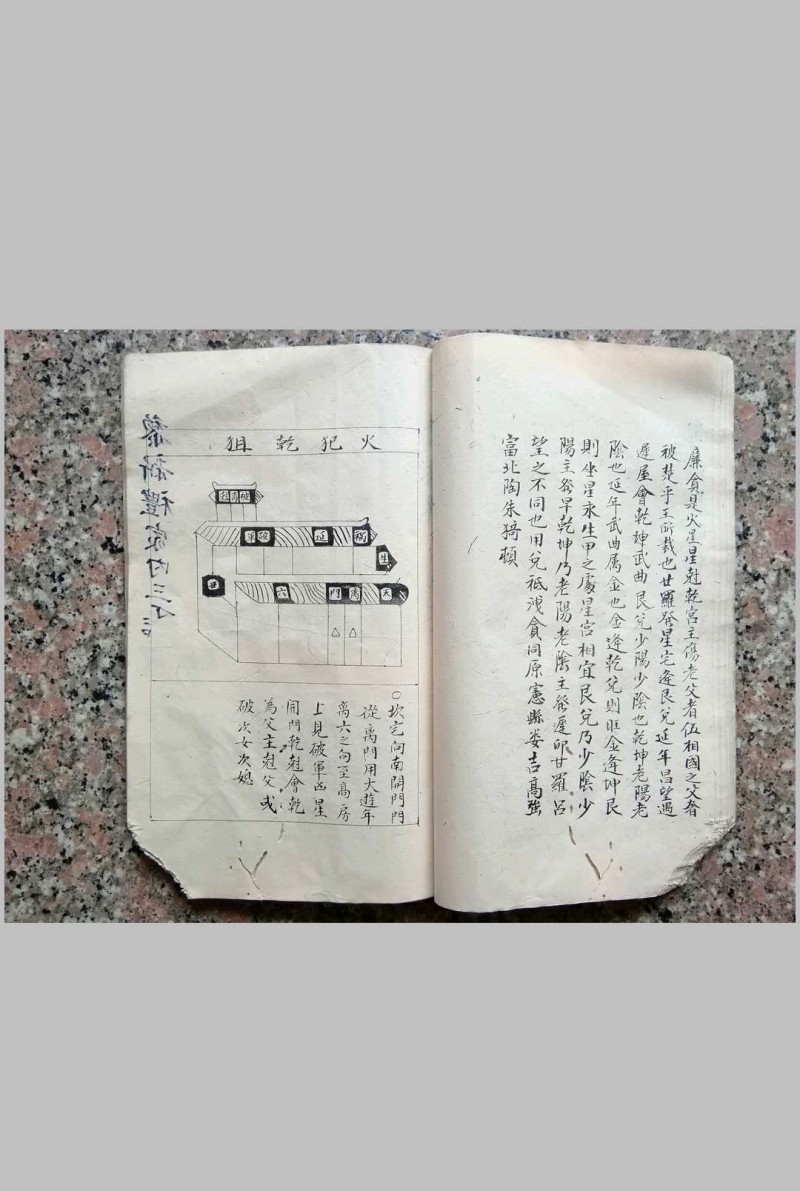 廉貪是火星星尅乾宮主傷老父者伍相國之父奢
被楚平王所裁也甘羅發星宅逢艮兌延年昌望遇
遲屋會乾坤武曲艮兌少陽少陰也乾坤老陽老
陰也延年武曲属金也金逢乾兌則旺金逢坤艮
則坐星永生甲之處星宮相宜艮兌乃少陰少
陽主發早乾坤乃老陽老陰主發遲即甘羅呂
望之不同也用兌祗淺貪同原憲縣娄吉高強
富北陶朱猗頓
火犯乾狙
禍
延
破軍
生
天
門
六
〇坎宅向南開門門
從离門用大遊年
离六之句至高房
上見破軍凶星
開門乾尅會乾
為父主尅父或
破次女次媳